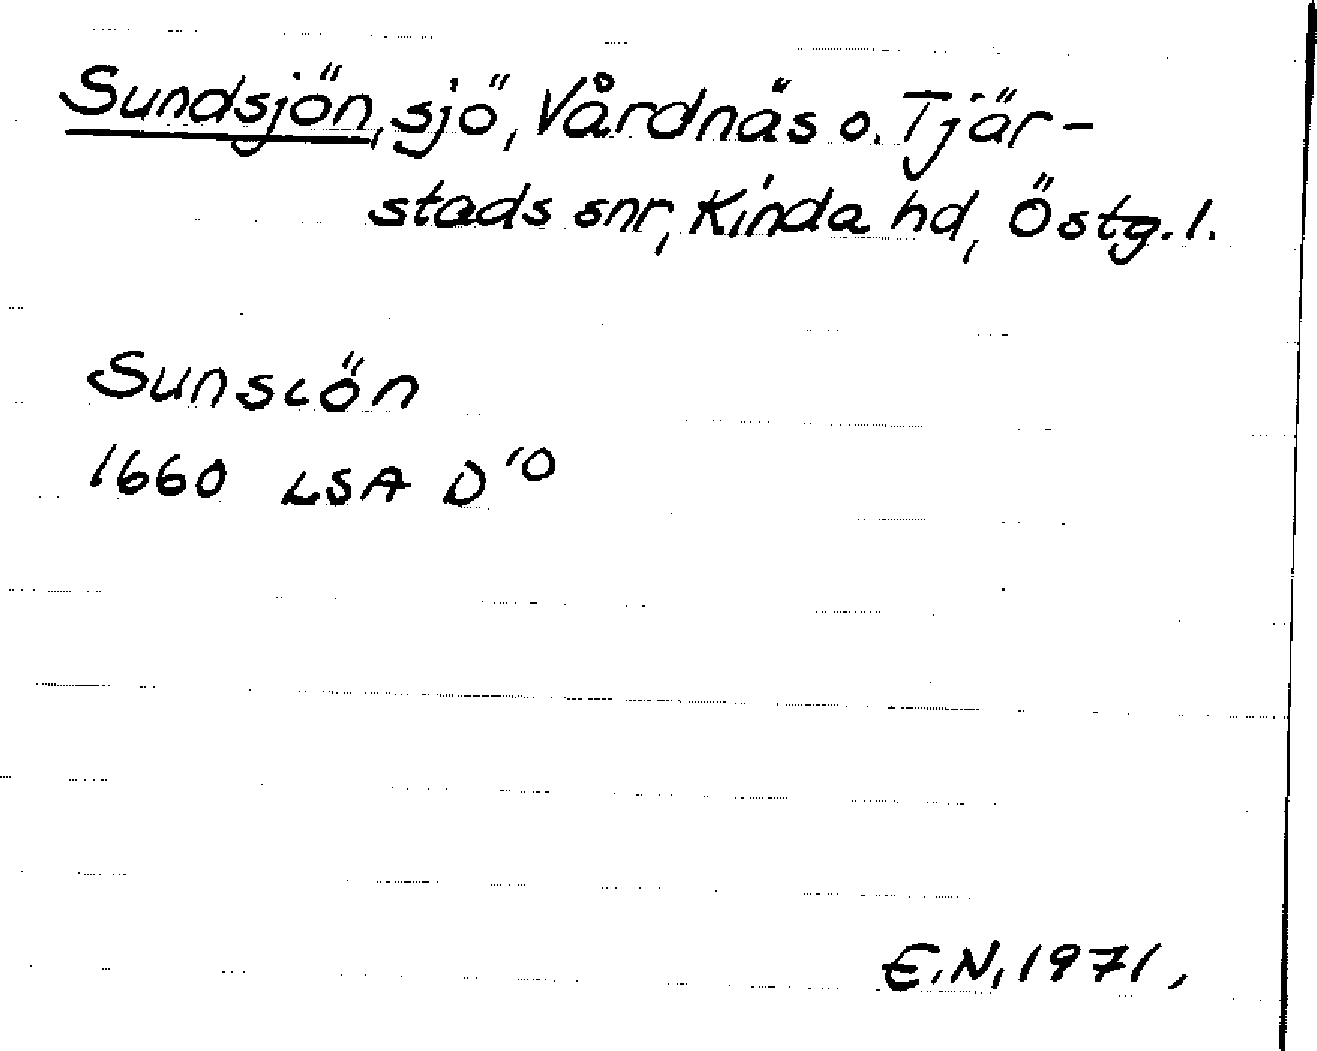 Sundsjön, sjö, Vårdnäs o. Tjär-
stads snr, Kinda hd, Östg. l.
Sunsiön
1660 LSA D'0
E.N. 1971.